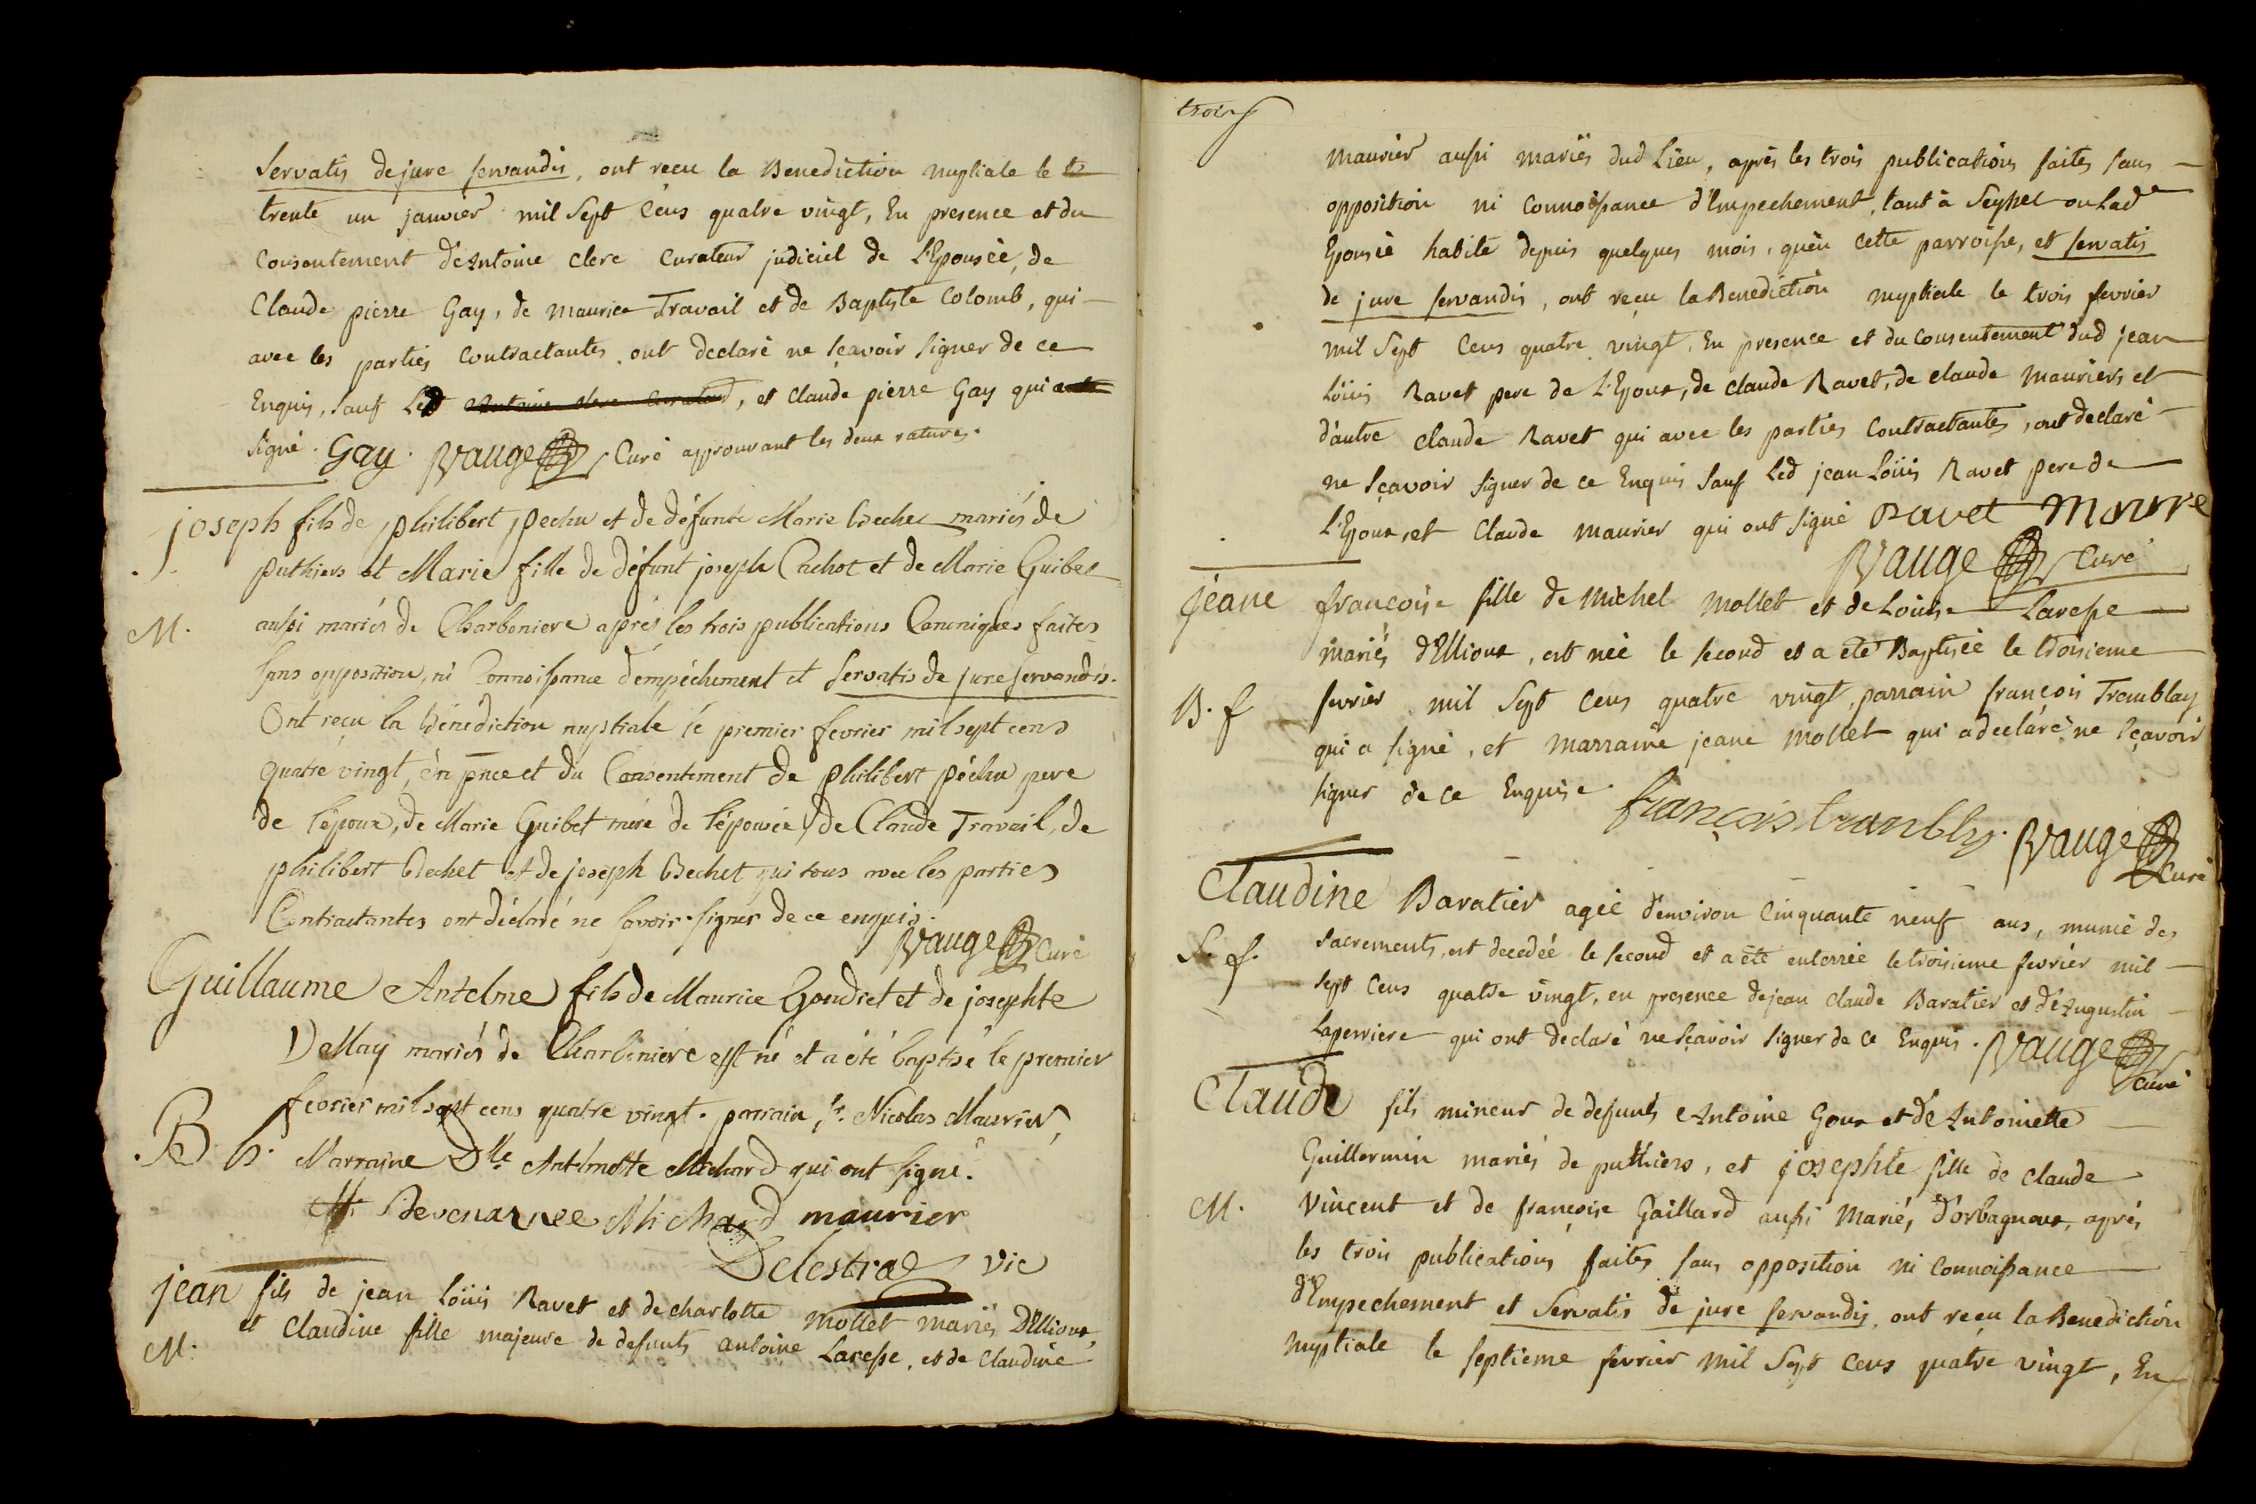 Servatis de jure servandis, ont reçu la Benediction nuptiale le
trente un janvier mil Sept Cens quatre vingt, En presence et du
Consentement d'Antoine clerc Curateur judiciel de L'Epousée, de
Claude pierre Gay, de maurice Travail et de Baptiste Colomb, qui
avec les parties Contractantes ont declaré ne sçavoir signer de ce
Enquis, sauf Led Antoine clerc Curateur, et Claude pierre Gay qui
signé. Gay. Vauge Curé approuvant les deux ratures.
joseph fils de philibert pechu et de défunte Marie Bechet mariés de
puthiers et Marie fille de défunt joseph Cachot et de Marie Guibet
M. aussi mariés de Charboniere après les trois publications Canoniques faites
sans opposition, ni Connoissance d'empéchement et servatis de jure servandis.
Ont reçu la Bénédiction nuptiale le premier fevrier mil sept cens
quatre vingt, en pnce et du Consentement de philibert péchu pere
de l'époux, de Marie Guibet mére de l'épousée, de Claude Travail, de
philibert Bechet et de joseph Bechet qui tous avec les parties
Contractantes ont déclaré ne savoir signer de ce enquis.
Vauge Curé
Guillaume Antelme fils de Maurice Goudict et de josephte
DeMay mariés de Charboniere est né et a été baptisé le premier
fevrier mil sept cens quatre vingt. parrain sr. Nicolas Maurier,
B. h. Marraine Dlle Antelmette Michard qui ont signé.
Michard maurier
Delestraz vic
jean fils de jean Loüis Ravet et de charlotte mollet mariés D'Ellioux,
M. et Claudine fille majeure de defunts antoine Laresse, et de Claudine
trois
maurier aussi mariés dud Lieu, après les trois publications faites sans
opposition ni connoissance d'Empechement, tant à Seyssel ou Lade
Epousée habite depuis quelques mois, qu'en cette parroisse, et servatis
de jure servandis, ont reçu la Benediction nuptiale le trois fevrier
mil Sept Cens quatre vingt, En presence et du consentement dud jean
Loüis Ravet pere de L'Epoux, de claude Ravet, de claude mauriers et
d'autre claude Ravet qui avec les parties Contractantes, ont declaré
ne sçavoir signer de ce Enquis sauf Led jean Loüis Ravet pere de
L'Epoux, et Claude maurier qui ont signé Ravet Morire
Vauge Curé
jeane françoise fille de Michel mollet et de Louise Laresse
mariés d'Ellioux, est née le second et a été Baptisée le troisieme
B. f fevrier mil Sept Cens quatre vingt, parrain françois Tremblay
qui a signé, et marraine jeane mollet qui a declaré ne sçavoir
signer de ce Enquise.
françois trambley. Vauge Curé
Claudine Baratier agée d'environ Cinquante neuf ans, munie des
S. f. sacrements, est decedée le second et a été enterrée le troisieme fevrier mil
sept Cens quatre vingt, en presence de jean claude Baratier et d'Augustin
Laperriere qui ont declaré ne sçavoir signer de ce Enquis. Vauge
Curé
Claude fils mineur de defunts Antoine Goux et d'Antoinette
Guillermin mariés de puthiers, et josephte fille de Claude
M. Vincent et de françoise Gaillard aussi Mariés d'orbagnoux, après
les trois publications faites sans opposition ni connoissance
d'Empechement et Servatis de jure servandis, ont reçu la Benediction
nuptiale le septieme fevrier mil Sept Cens quatre vingt, En